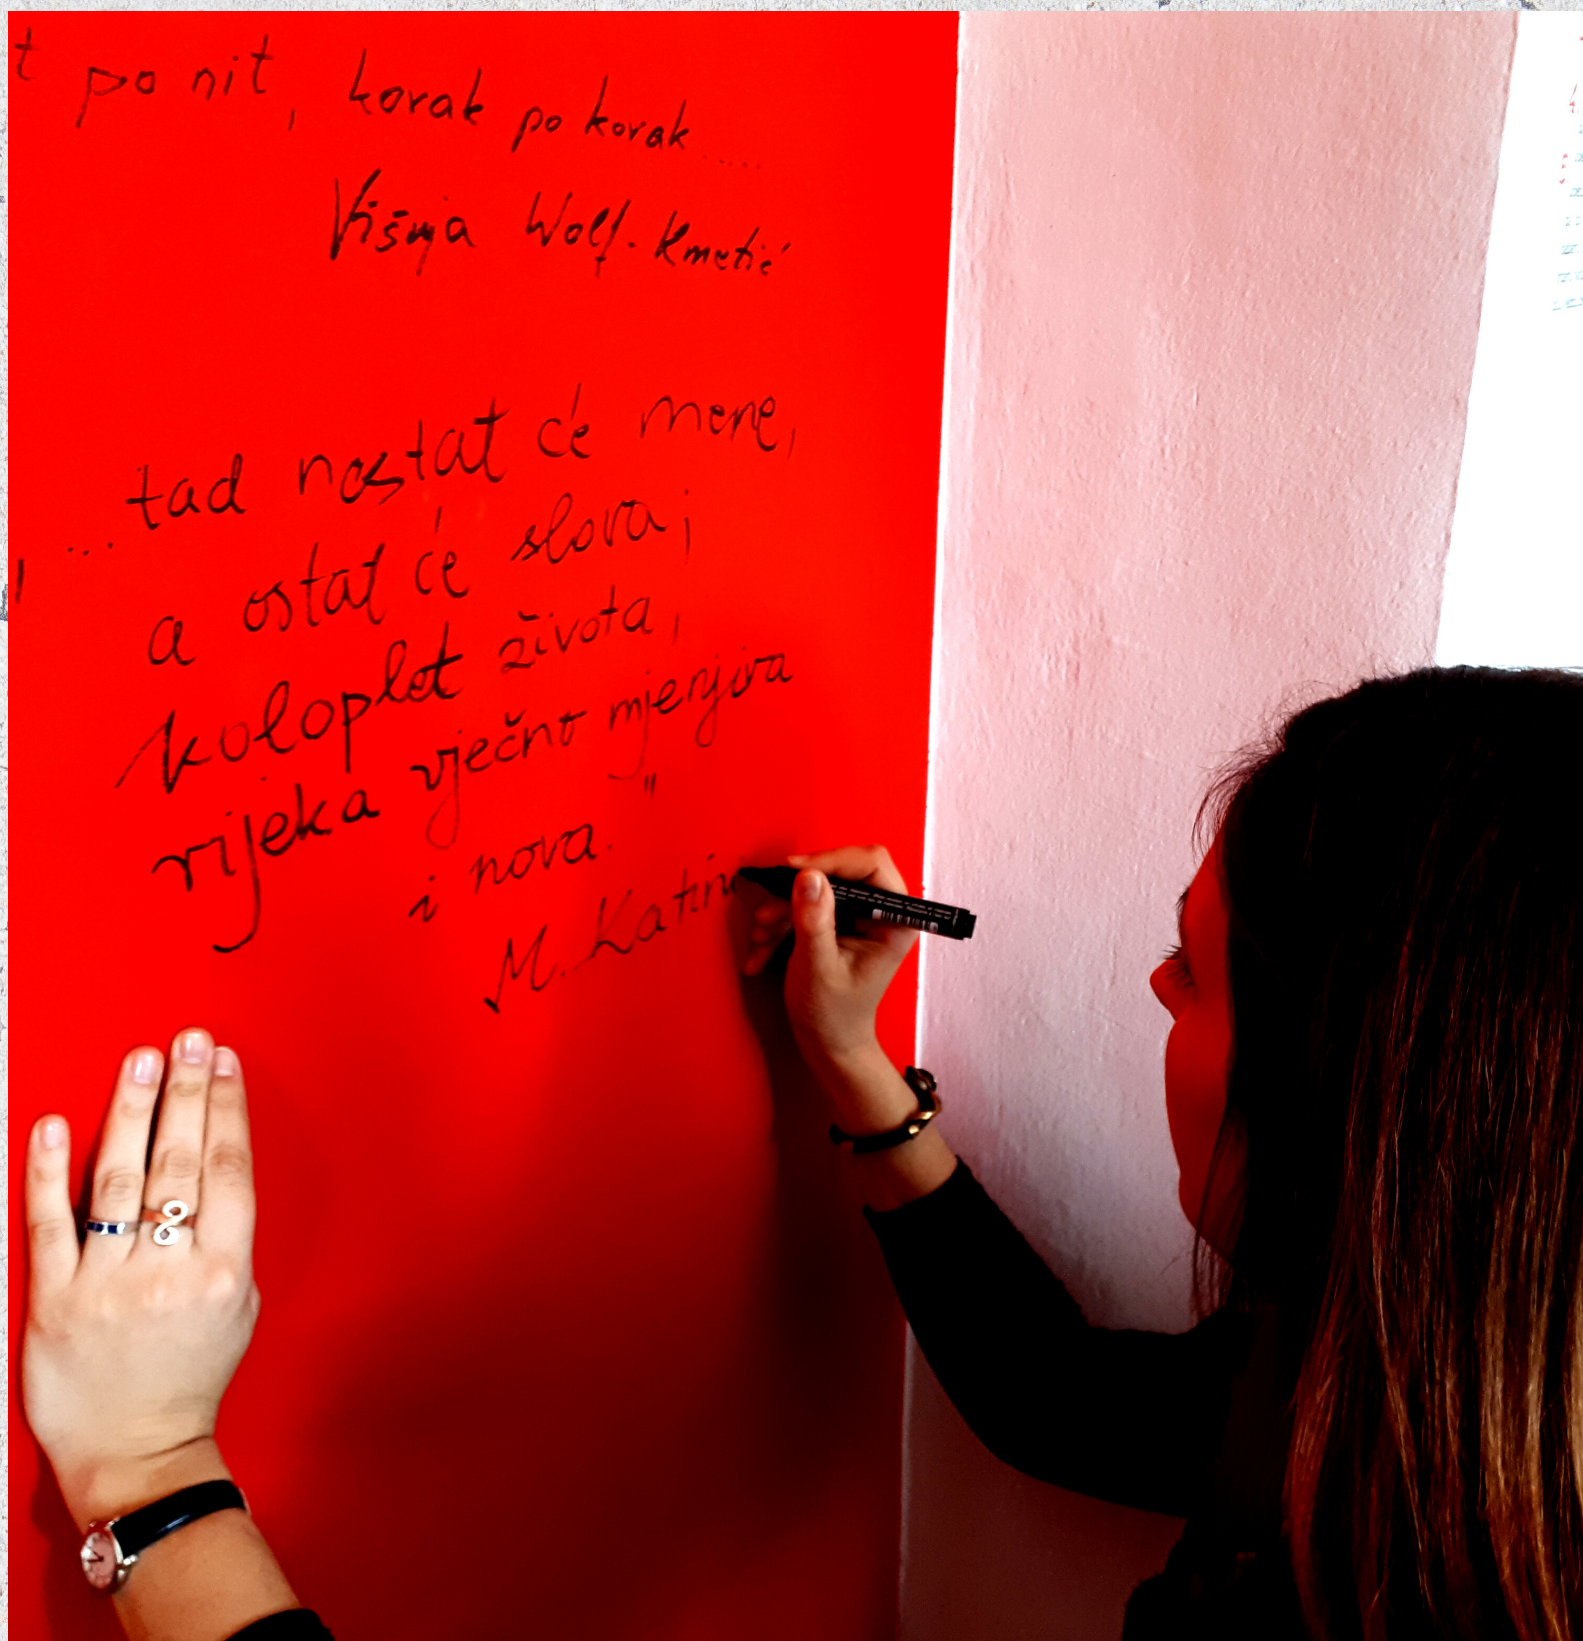 t po nit, korak po korak.....
Višnja Wolf-Kmetić
...tad nestat će mene,
a ostat će slova;
koloplet života,
rijeka vječno mjenjiva
i nova."
M. Katini